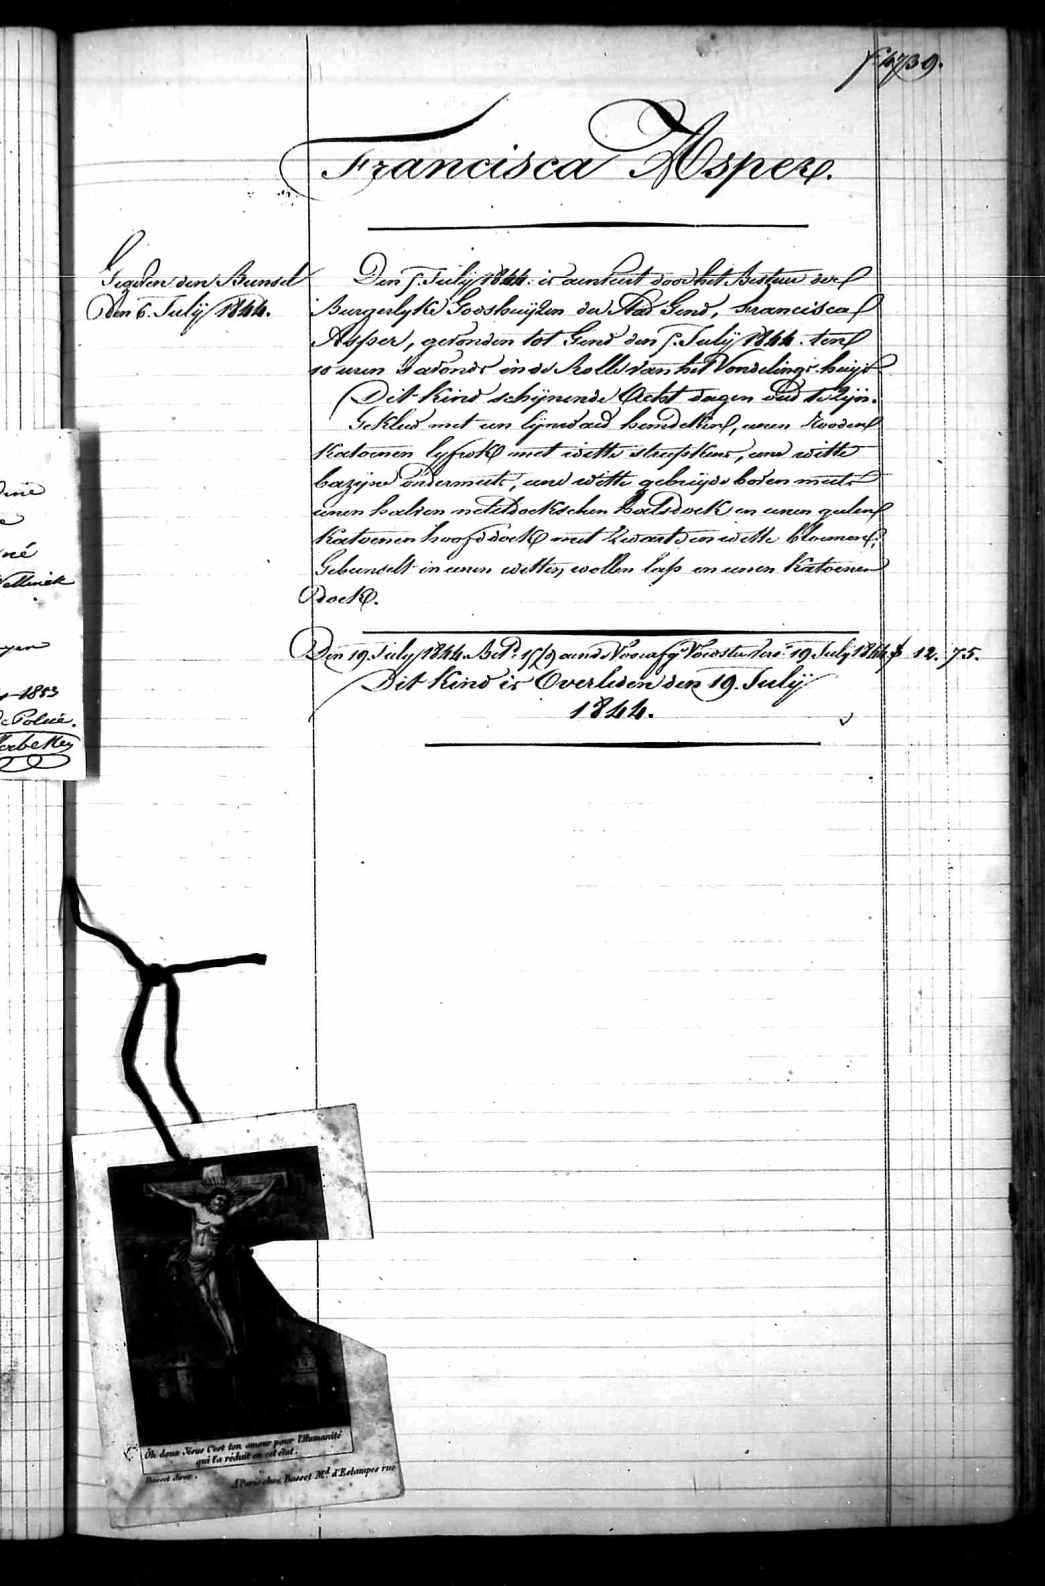 f. 4739.
Francisca Asper.
Gegeven den Bunsel
Den 6. July 1844.
Den 5. July 1844. is aenveirt door het Bestuer der
Burgerlyke Godshuyzen der Stad Gend, Francisca
Asper, gevonden tot Gend den 5. July 1844. ten
10 uren s'avonds in de Rolle van het Vondelings-huys
Dit Kind schynende Acht dagen oud te zyn.
Gekleed met een lynwaed hemdeken, eenen Rooden
Katoenen lyfrok met witte streepkens, eene witte
bazyne ondermuts, eene witte gebreyde boven muts
eenen halven neteldoekschen halsdoek en eenen geelen
Katoenen hoofddoek met Zwarte en witte bloemen;
Gebunselt in eenen witten wollen lap en eenen Katoenen
doek.
Den 19 July 1844 Bet. aende Voedster 19 July 1844 f 12.75.
Dit Kind is Overleden den 19. July
1844.
diné
né
Vellinck
1853
de Police.
Verbekey
Oh doux Jésus C'est ton amour pour l'Humanité
qui t'a réduit en cet état.
Basset direx.
A Paris chez Basset Md. d'Estampes rue